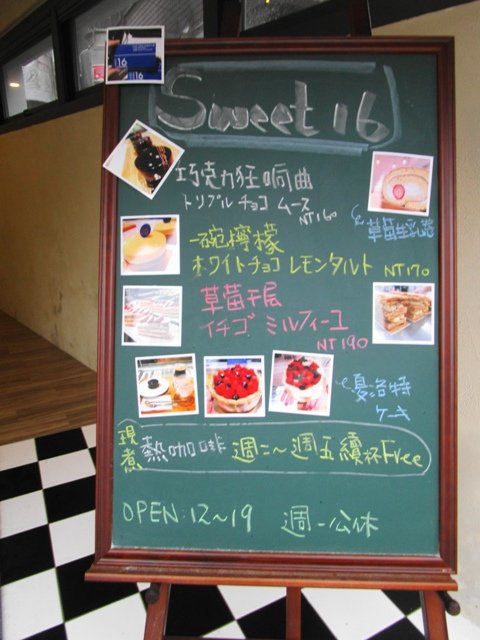 16
16
Sweet 16
巧克力狂响曲
トリプルチョコ ムース
NT160
草莓生乳卷
一碗檸檬
ホワイトチョコ レモンタルト NT170
草莓千层
イチゴ ミルフィーユ
NT190
夏洛特
ケーキ
現煮 熱咖啡 週二~週五續杯Free
OPEN:12~19 週一公休